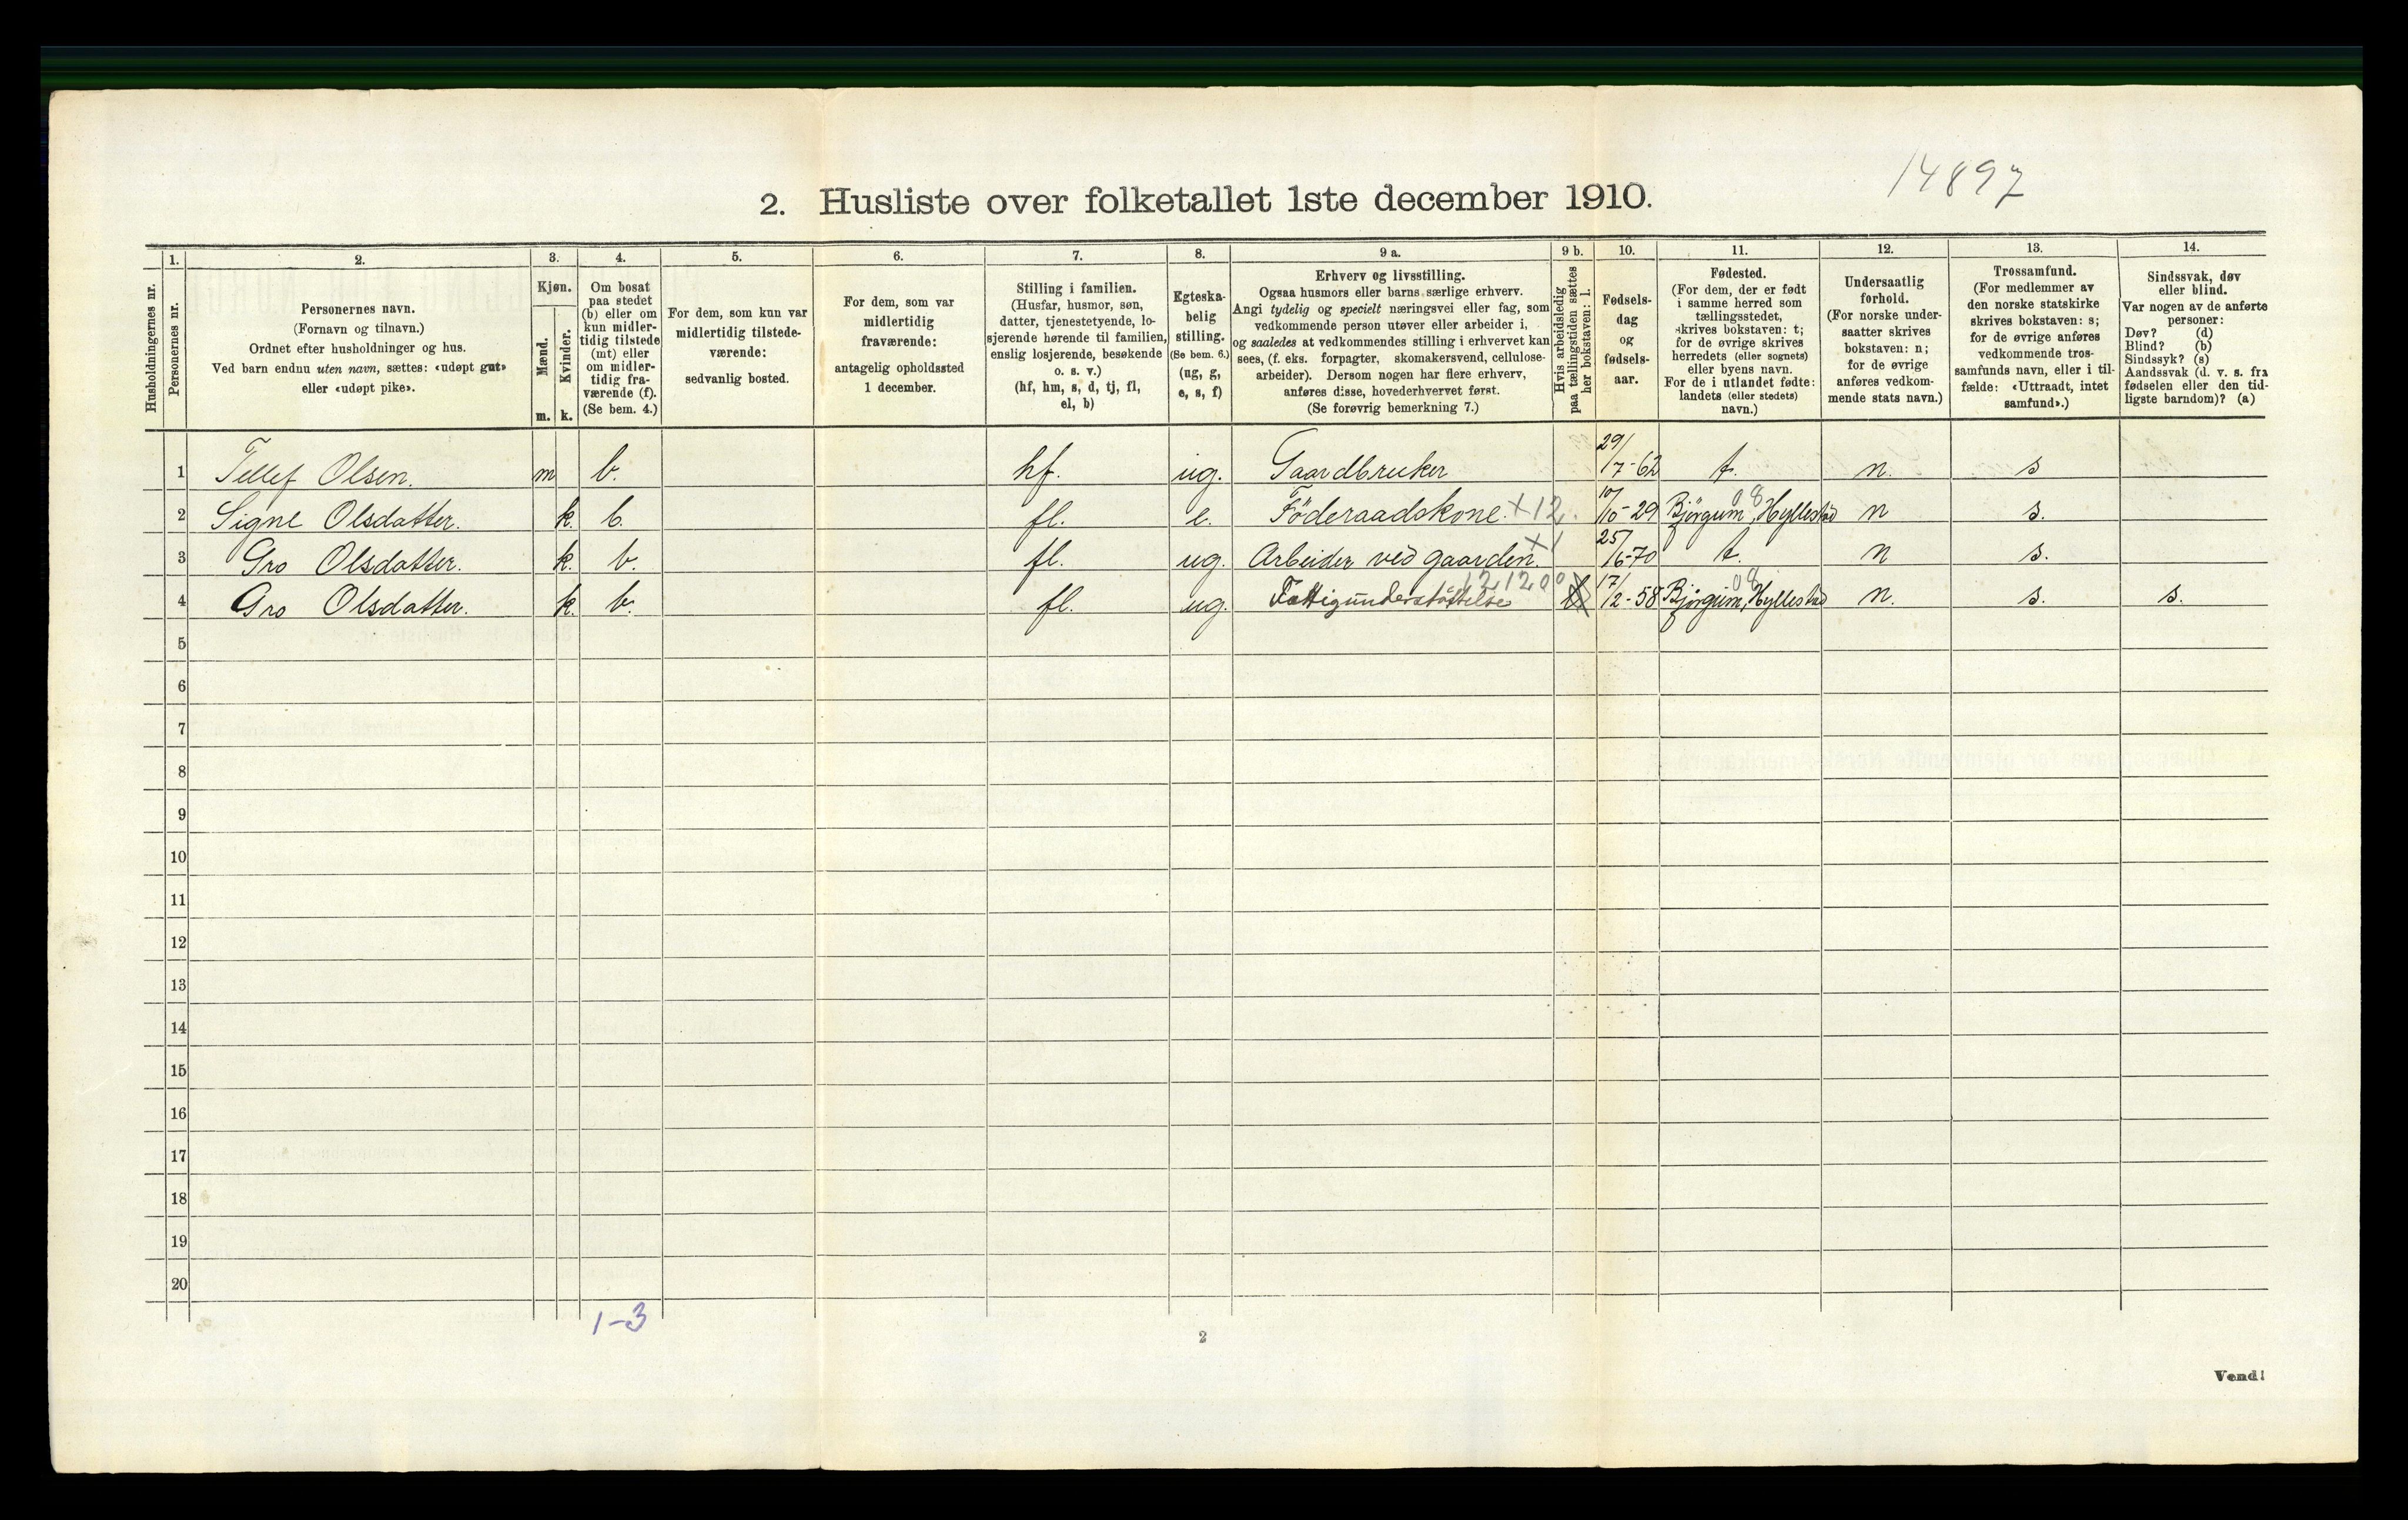 14897
2. Husliste over folketallet 1ste december 1910.
Husholdningernes nr.
1.
Personernes nr.
2.
Personernes navn.
(Fornavn og tilnavn.)
Ordnet efter husholdninger og hus.
Ved barn endnu uten navn, sættes: «udøpt gut»
eller «udøpt pike».
3.
Kjøn.
Mænd.
m.
Kvinder.
k.
4.
Om bosat
paa stedet
(b) eller om
kun midler-
tidig tilstede
(mt) eller
om midler-
tidig fra-
værende (f).
(Se bem. 4.)
5.
For dem, som kun var
midlertidig tilstede-
værende:
sedvanlig bosted.
6.
For dem, som var
midlertidig
fraværende:
antagelig opholdssted
1 december.
7.
Stilling i familien.
(Husfar, husmor, søn,
datter, tjenestetyende, lo-
sjerende hørende til familien,
enslig losjerende, besøkende
o. s. v.)
(hf, hm, s, d, tj, fl,
el, b)
8.
Egteska-
belig
stilling.
(Se bem. 6.)
(ug, g,
e, s, f)
9 a.
Erhverv og livsstilling.
Ogsaa husmors eller barns særlige erhverv.
Angi tydelig og specielt næringsvei eller fag, som
vedkommende person utøver eller arbeider i,
og saaledes at vedkommendes stilling i erhvervet kan
sees, (f. eks. forpagter, skomakersvend, cellulose-
arbeider). Dersom nogen har flere erhverv,
anføres disse, hovederhvervet først.
(Se forøvrig bemerkning 7.)
9 b.
Hvis arbeidsledig
paa tællingstiden sættes
her bokstaven: l.
10.
Fødsels-
dag
og
fødsels-
aar.
11.
Fødested.
(For dem, der er født
i samme herred som
tællingsstedet,
skrives bokstaven: t;
for de øvrige skrives
herredets (eller sognets)
eller byens navn.
For de i utlandet fødte:
landets (eller stedets)
navn.)
12.
Undersaatlig
forhold.
(For norske under-
saatter skrives
bokstaven: n;
for de øvrige
anføres vedkom-
mende stats navn.)
13.
Trossamfund.
(For medlemmer av
den norske statskirke
skrives bokstaven: s;
for de øvrige anføres
vedkommende tros-
samfunds navn, eller i til-
fælde: «Uttraadt, intet
samfund».)
14.
Sindssvak, døv
eller blind.
Var nogen av de anførte
personer:
Døv? (d)
Blind? (b)
Sindssyk? (s)
Aandssvak (d. v. s. fra
fødselen eller den tid-
ligste barndom)? (a)
1 Tellef Olsen. m b. hf. ug. Gaardbruker 29/7-62 t. n. s
2 Signe Olsdatter. k. b. fl. e. Föderaadskone. X12 10/10-29 Bjørgum, Hyllestad 08 n s.
3 Gro Olsdatter. k. b. fl. ug. Arbeider ved gaarden. X1 25/6-70 t. n s.
4 Gro Olsdatter. k. b. fl. ug. Fattigunderstöttelse 121200 17/2-58 Bjørgum, Hyllestad 08 n. s. s.
5
6
7
8
9
10
11
12
13
14
15
16
17
18
19
20
1-3
2
Vend!